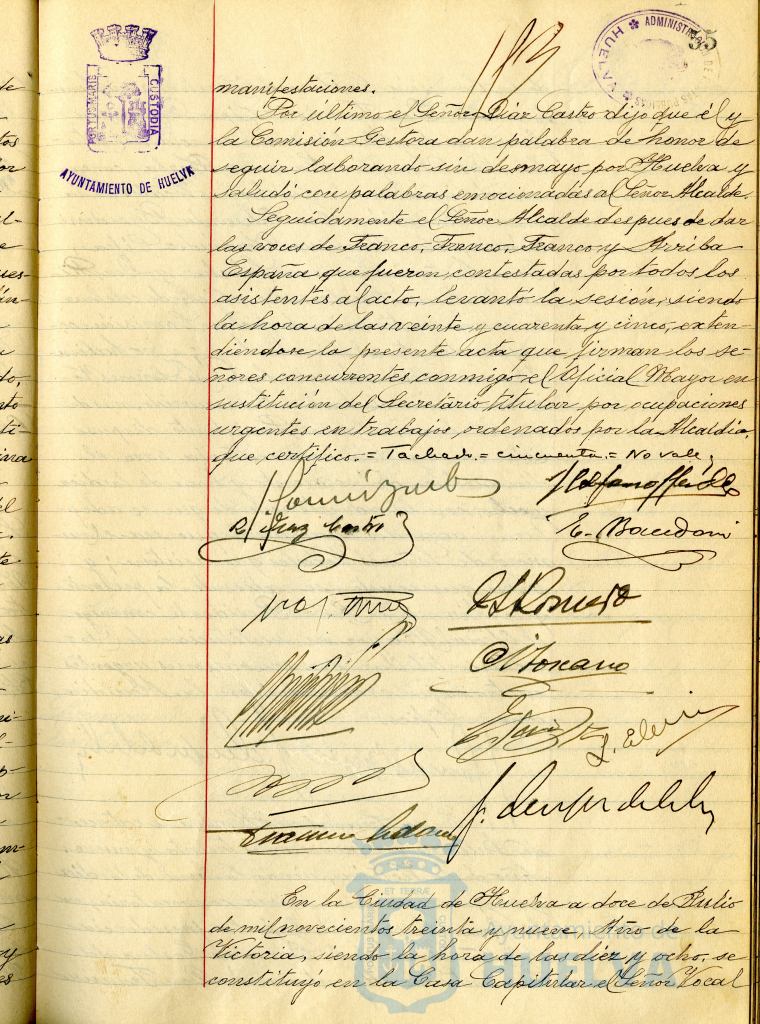 35
PORTUS MARIS
CUSTODIA
AYUNTAMIENTO DE HUELVA
manifestaciones.
Por último el Señor Díaz Castro dijo que él y
la Comisión Gestora dan palabra de honor de
seguir laborando sin desmayo por Huelva y
saludó con palabras emocionadas al Señor Alcalde.
Seguidamente el Señor Alcalde despues de dar
las voces de Franco, Franco, Franco y Arriba
España que fueron contestadas por todos los
asistentes al acto, levantó la sesión, siendo
la hora de las veinte y cuarenta y cinco, exten-
diéndose la presente acta que firman los se-
ñores concurrentes conmigo el Oficial Mayor en
sustitución del Secretario titular por ocupaciones
urgentes en trabajos ordenados por la Alcaldia,
que certifico. = Tachado = cincuenta = No vale,
R Diaz Castro
En la Ciudad de Huelva a doce de Julio
de mil novecientos treinta y nueve Año de la
Victoria, siendo la hora de las diez y ocho, se
constituyó en la Casa Capitular el Señor Vocal
Ayuntamiento de
HUELVA